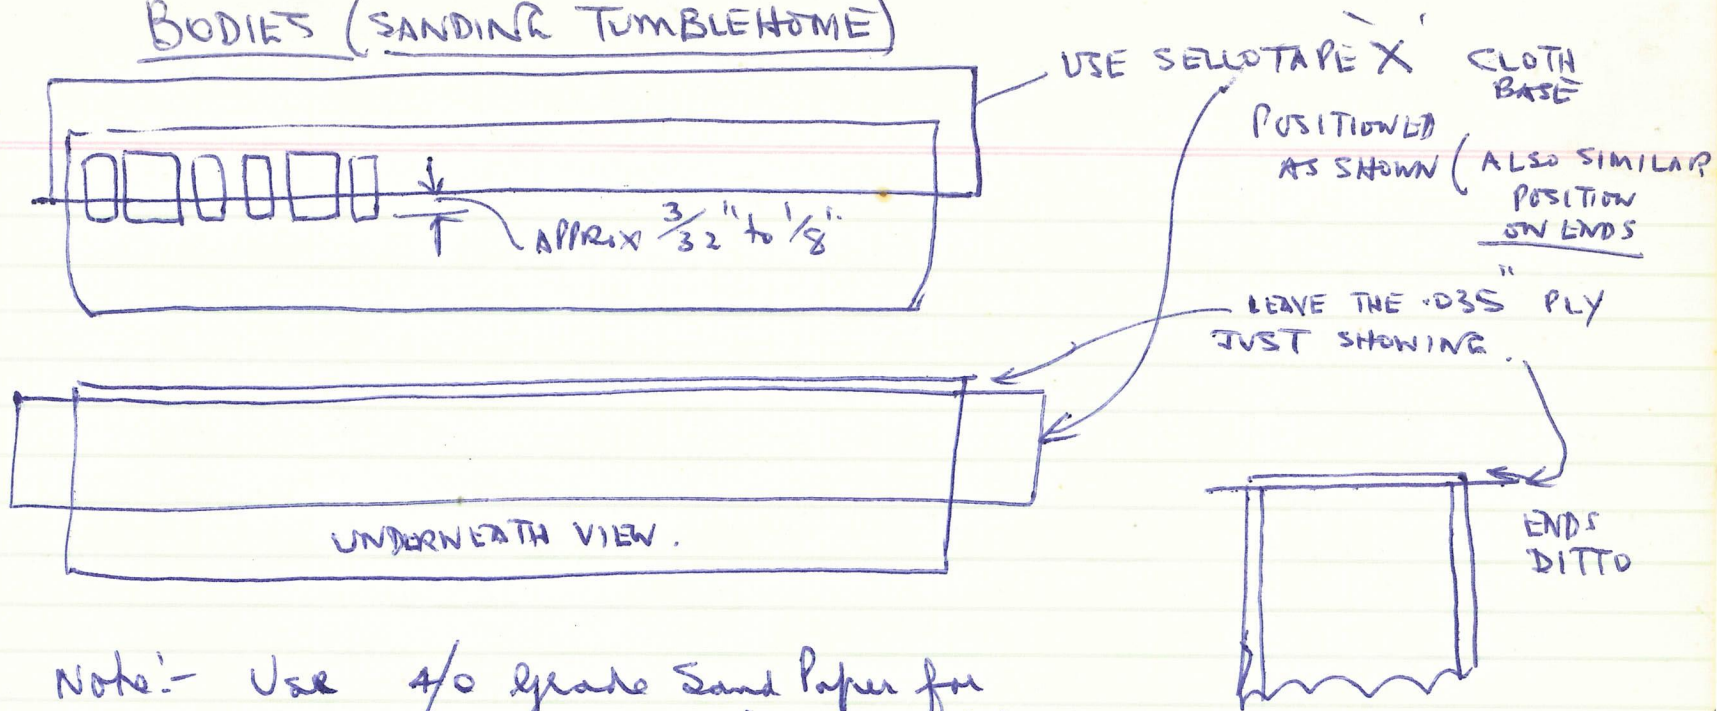 BODIES (SANDING TUMBLEHOME)
USE SELLOTAPE 'X' CLOTH
BASE
POSITIONED
AS SHOWN (ALSO SIMILAR
POSITION
ON ENDS
APPRIX 3/32" to 1/8".
LEAVE THE .035" PLY
JUST SHOWING.
UNDERNEATH VIEW.
ENDS
DITTO
Note:- Use 4/0 grade Sand Paper for